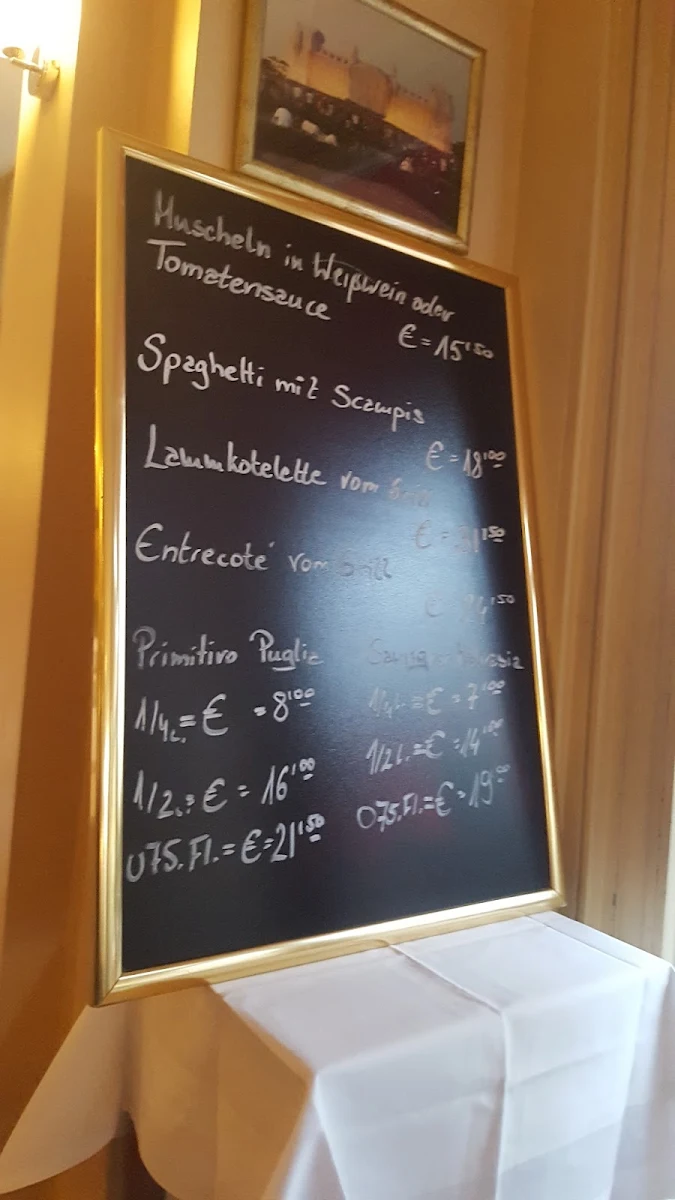 Muscheln in Weißwein oder
Tomatensauce
€ = 15'50
Spaghetti mit Scampis
€ = 18'00
Lammkotelette vom Grill
€ = '50
Entrecoté vom Grill
€ '50
Primitivo Puglia
1/4L. = € = 8'00
1/2L. = € = 16'00
075. Fl. = € = 21'50
1/4L. = € = 7'00
1/2L. = € = 14'00
075. Fl. = € = 19'00